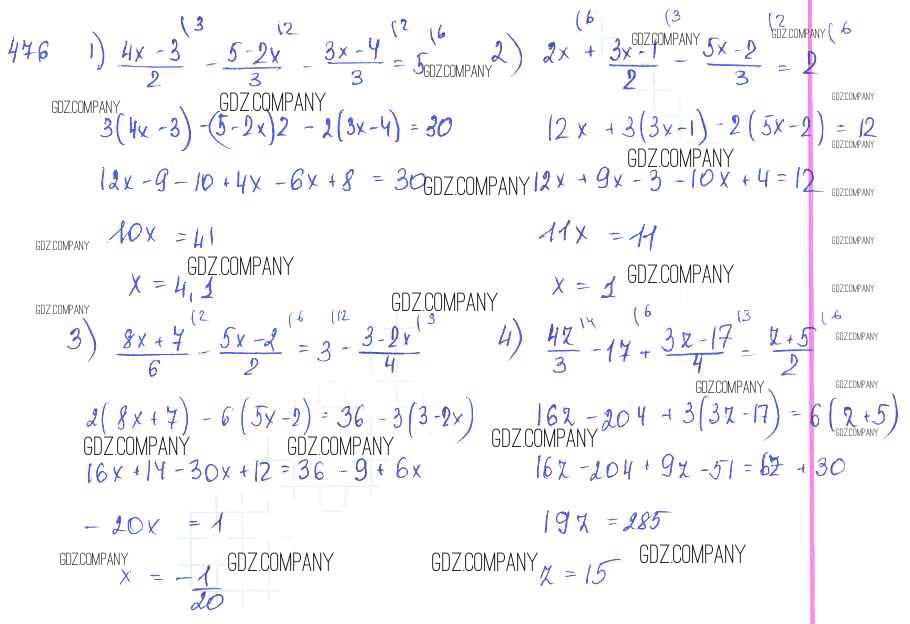 476 1) (4x - 3)/2 (3 - (5 - 2x)/3 (2 - (3x - 4)/3 (2 = 5 (6
GDZ.COMPANY
GDZ.COMPANY
GDZ.COMPANY
3(4x - 3) - (5 - 2x)2 - 2(3x - 4) = 30
12x - 9 - 10 + 4x - 6x + 8 = 30
GDZ.COMPANY
10x = 41
GDZ.COMPANY
GDZ.COMPANY
x = 4,1
2) 2x (6 + (3x - 1)/2 (3 - (5x - 2)/3 (2 = 2 (6
GDZ.COMPANY
GDZ.COMPANY
GDZ.COMPANY
12x + 3(3x - 1) - 2(5x - 2) = 12
GDZ.COMPANY
GDZ.COMPANY
12x + 9x - 3 - 10x + 4 = 12
GDZ.COMPANY
11x = 11
GDZ.COMPANY
x = 1
GDZ.COMPANY
GDZ.COMPANY
GDZ.COMPANY
GDZ.COMPANY
GDZ.COMPANY
3) (8x + 7)/6 (2 - (5x - 2)/2 (6 = 3 (12 - (3 - 2x)/4 (3
2(8x + 7) - 6(5x - 2) = 36 - 3(3 - 2x)
GDZ.COMPANY
GDZ.COMPANY
16x + 14 - 30x + 12 = 36 - 9 + 6x
- 20x = 1
GDZ.COMPANY
GDZ.COMPANY
x = - 1/20
4) 4z/3 (4 - 17 (6 + (3z - 17)/4 (3 = (z + 5)/2 (6
GDZ.COMPANY
GDZ.COMPANY
GDZ.COMPANY
16z - 204 + 3(3z - 17) = 6(z + 5)
GDZ.COMPANY
GDZ.COMPANY
16z - 204 + 9z - 51 = 6z + 30
19z = 285
GDZ.COMPANY
GDZ.COMPANY
z = 15